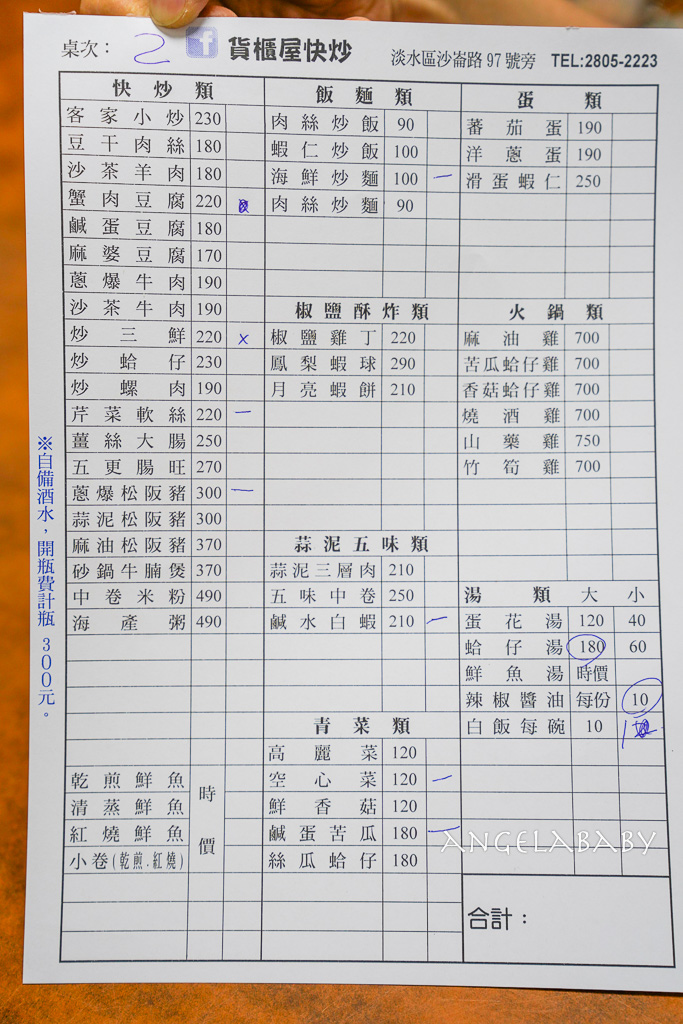 桌次： 2 f 貨櫃屋快炒 淡水區沙崙路97號旁 TEL:2805-2223
快炒類
客家小炒 230
豆干肉絲 180
沙茶羊肉 180
蟹肉豆腐 220
鹹蛋豆腐 180
麻婆豆腐 170
蔥爆牛肉 190
沙茶牛肉 190
炒三鮮 220 x
炒蛤仔 230
炒螺肉 190
芹菜軟絲 220 一
薑絲大腸 250
五更腸旺 270
蔥爆松阪豬 300 一
蒜泥松阪豬 300
麻油松阪豬 370
砂鍋牛腩煲 370
中卷米粉 490
海產粥 490
乾煎鮮魚
清蒸鮮魚
紅燒鮮魚
小卷(乾煎.紅燒)
時價
飯麵類
肉絲炒飯 90
蝦仁炒飯 100
海鮮炒麵 100 一
肉絲炒麵 90
椒鹽酥炸類
椒鹽雞丁 220
鳳梨蝦球 290
月亮蝦餅 210
蒜泥五味類
蒜泥三層肉 210
五味中卷 250
鹹水白蝦 210 一
青菜類
高麗菜 120
空心菜 120 一
鮮香菇 120
鹹蛋苦瓜 180 一
絲瓜蛤仔 180
蛋類
蕃茄蛋 190
洋蔥蛋 190
滑蛋蝦仁 250
火鍋類
麻油雞 700
苦瓜蛤仔雞 700
香菇蛤仔雞 700
燒酒雞 700
山藥雞 750
竹筍雞 700
湯類 大 小
蛋花湯 120 40
蛤仔湯 180 60
鮮魚湯 時價
辣椒醬油 每份 10
白飯每碗 10
合計：
※自備酒水，開瓶費計瓶 300元。
ANGELABABY